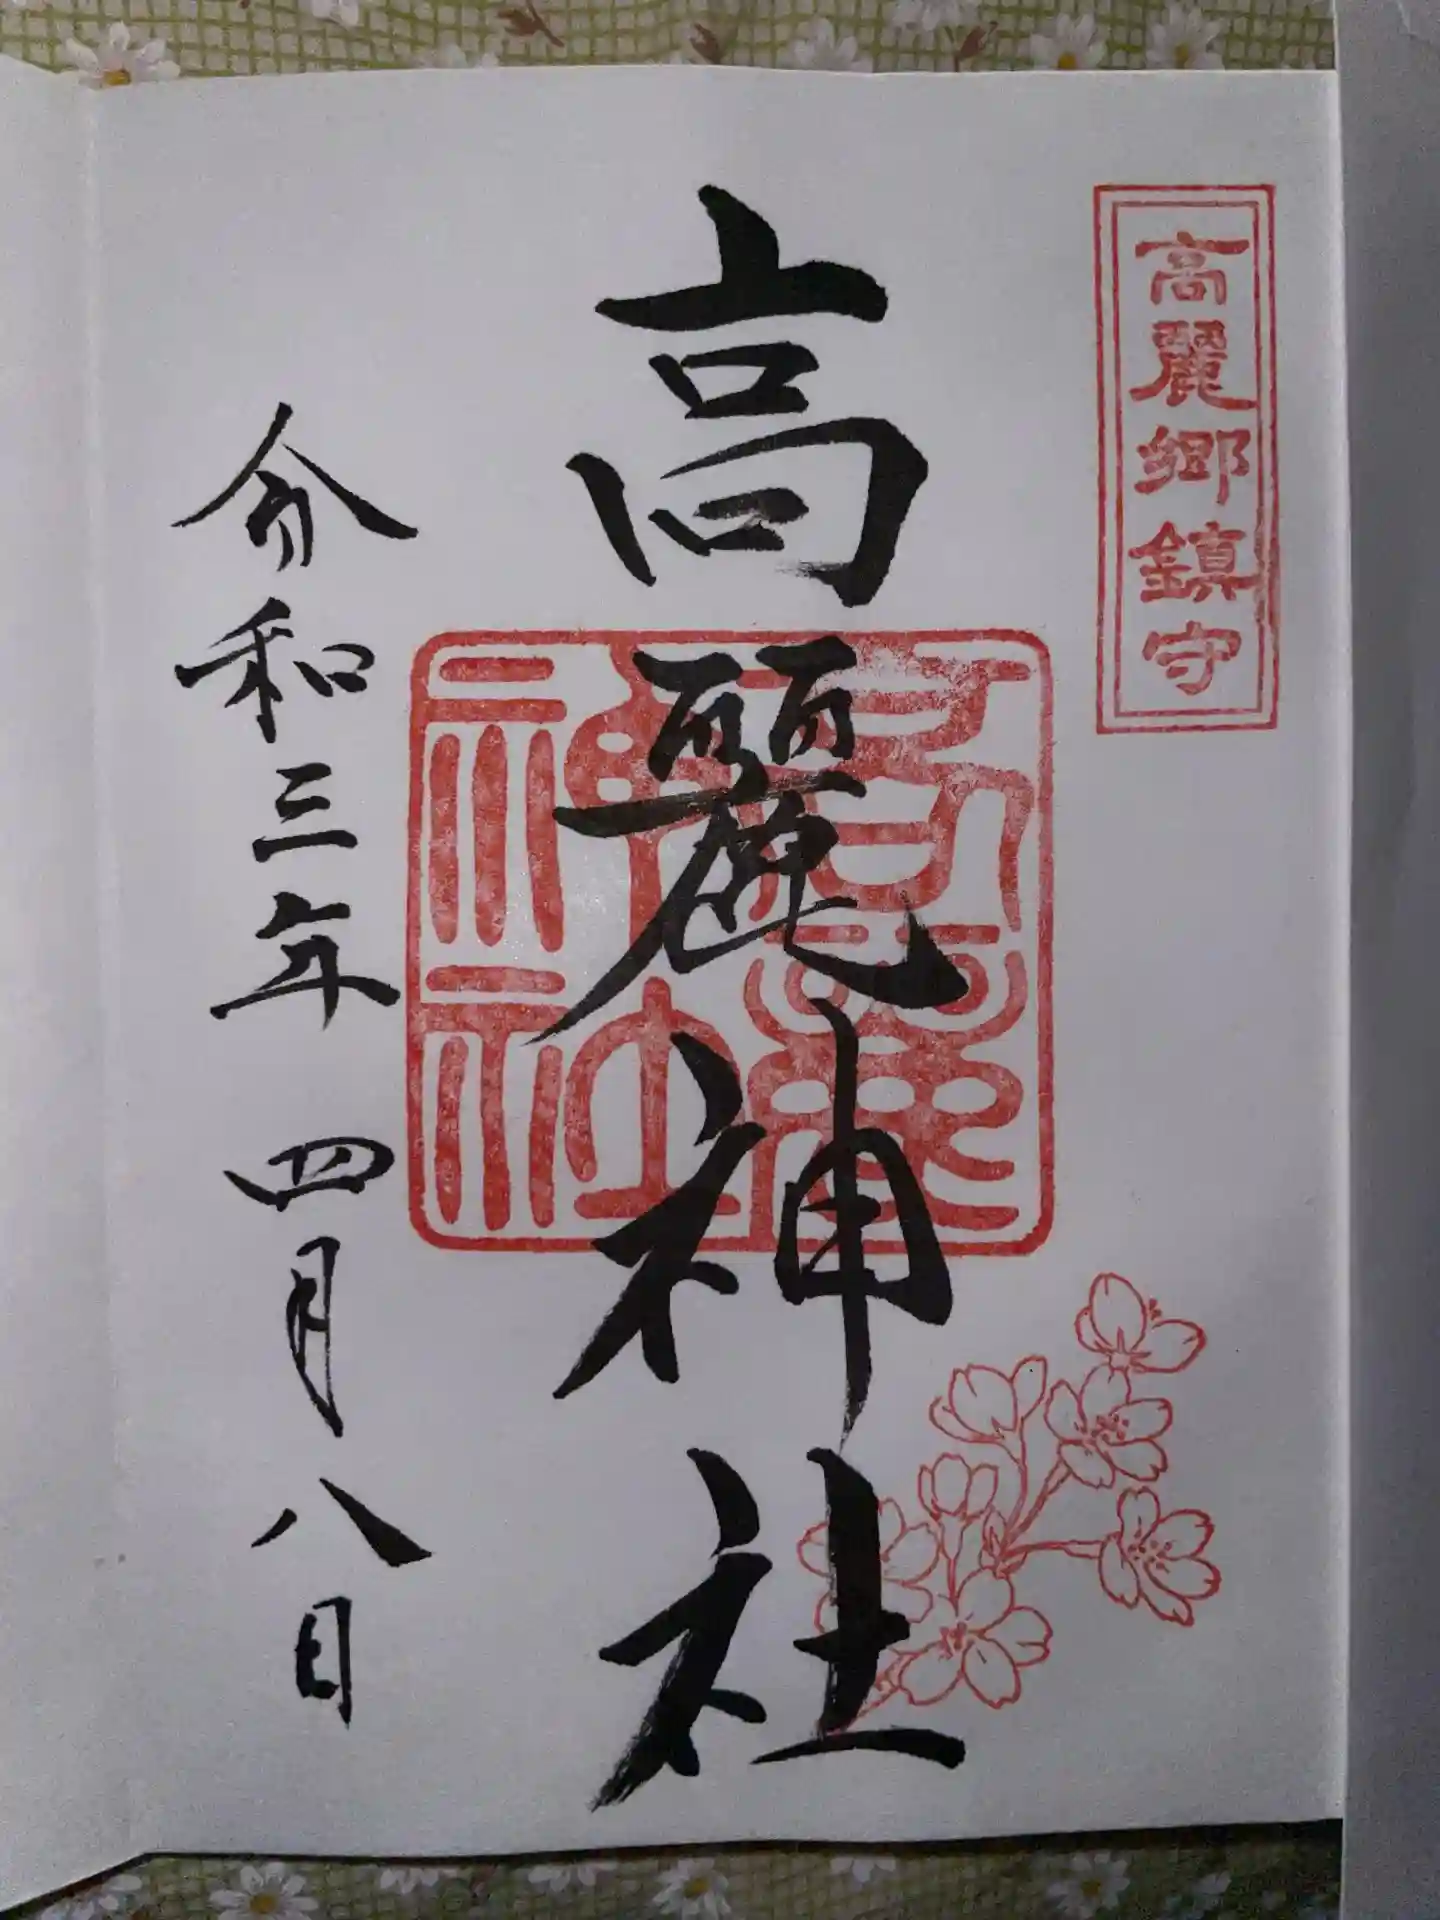 高麗郷鎮守
高麗神社
高麗神社
令和三年四月八日